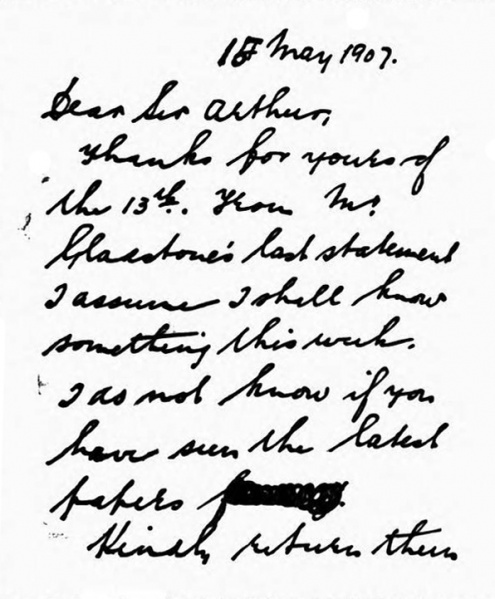 May 1907.
Dear Sir Arthur,
Thanks for yours of
the 13th. From Mr
Gladstone's last statement
I assume I shall know
something this week.
I do not know if you
have seen the latest
papers
Kindly return them